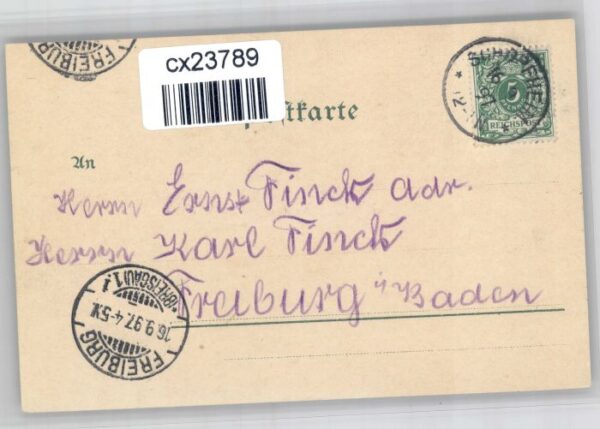 FREIBURG
cx23789
stkarte
SCHOPFHEIM
16 9 97
5
REICHSPOST
An
Herrn Ernst Finck adr.
Herrn Karl Finck
Freiburg i/Baden
FREIBURG
(BREISGAU) 1.
16.9.97.4-5N.